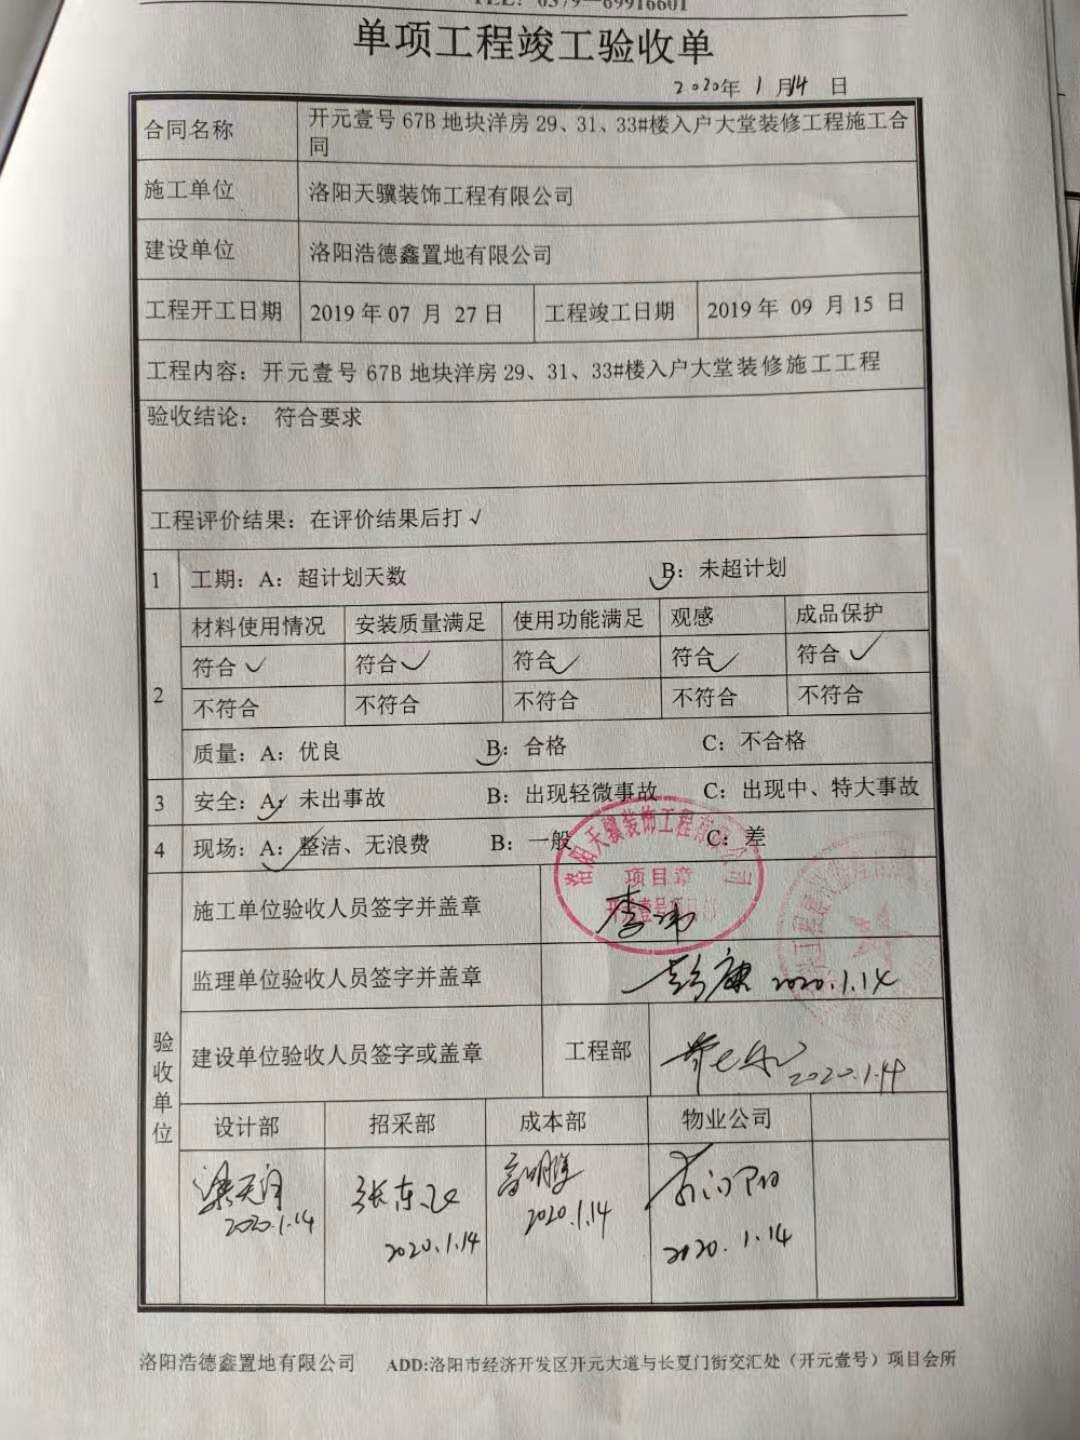 TEL: 0379—69916601
单项工程竣工验收单
2020年 1 月14 日
合同名称 开元壹号 67B 地块洋房 29、31、33#楼入户大堂装修工程施工合
同
施工单位 洛阳天骥装饰工程有限公司
建设单位 洛阳浩德鑫置地有限公司
工程开工日期 2019 年 07 月 27 日 工程竣工日期 2019 年 09 月 15 日
工程内容：开元壹号 67B 地块洋房 29、31、33#楼入户大堂装修施工工程
验收结论： 符合要求
工程评价结果：在评价结果后打√
1 工期：A：超计划天数 B：未超计划
2 材料使用情况 安装质量满足 使用功能满足 观感 成品保护
符合✓ 符合✓ 符合✓ 符合✓ 符合✓
不符合 不符合 不符合 不符合 不符合
质量：A：优良 B：合格 C：不合格
3 安全：A：未出事故 B：出现轻微事故 C：出现中、特大事故
4 现场：A：整洁、无浪费 B：一般 C：差
洛阳天骥装饰工程有限公司
项目章
开元壹号项目部
验收单位
施工单位验收人员签字并盖章 李伟
监理单位验收人员签字并盖章 彭康 2020.1.14
建设单位验收人员签字或盖章 工程部 2020.1.14
设计部 招采部 成本部 物业公司
张东
2020.1.14 2020.1.14 2020.1.14 2020.1.14
洛阳浩德鑫置地有限公司 ADD:洛阳市经济开发区开元大道与长夏门街交汇处（开元壹号）项目会所